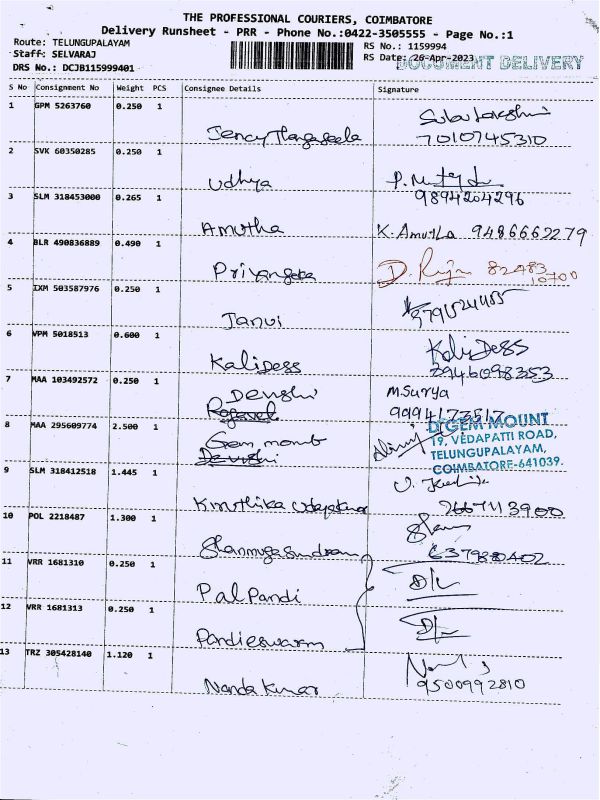 THE PROFESSIONAL COURIERS, COIMBATORE
Delivery Runsheet - PRR - Phone No.:0422-3505555 - Page No.:1
Route: TELUNGUPALAYAM
RS No.: 1159994
Staff: SELVARAJ
RS Date: 26-Apr-2023
DOCUMENT DELIVERY
DRS No.: DCJB115999401
S No Consignment No Weight PCS Consignee Details Signature
1 GPM 5263760 0.250 1
7010745310
2 SVK 60350285 0.250 1
Udhya
9894204296
3 SLM 318453000 0.265 1
Amutha K. Amutha 9486662279
4 BLR 490836889 0.490 1
Priyangka 82483
10700
5 IXM 503587976 0.250 1
Janvi
6 VPM 5018513 0.600 1
Kalidess Kalidess
7 MAA 103492572 0.250 1
M.Surya
8 MAA 295609774 2.500 1
Gem mount
D'GEM MOUNT
19, VEDAPATTI ROAD,
TELUNGUPALAYAM,
COIMBATORE-641039.
9 SLM 318412518 1.445 1
10 POL 2218487 1.300 1
Shanmuga Sundram
11 VRR 1681310 0.250 1
Pal Pandi
12 VRR 1681313 0.250 1
Pandieswarm
13 TRZ 305428140 1.120 1
Nanda Kumar 9500992810